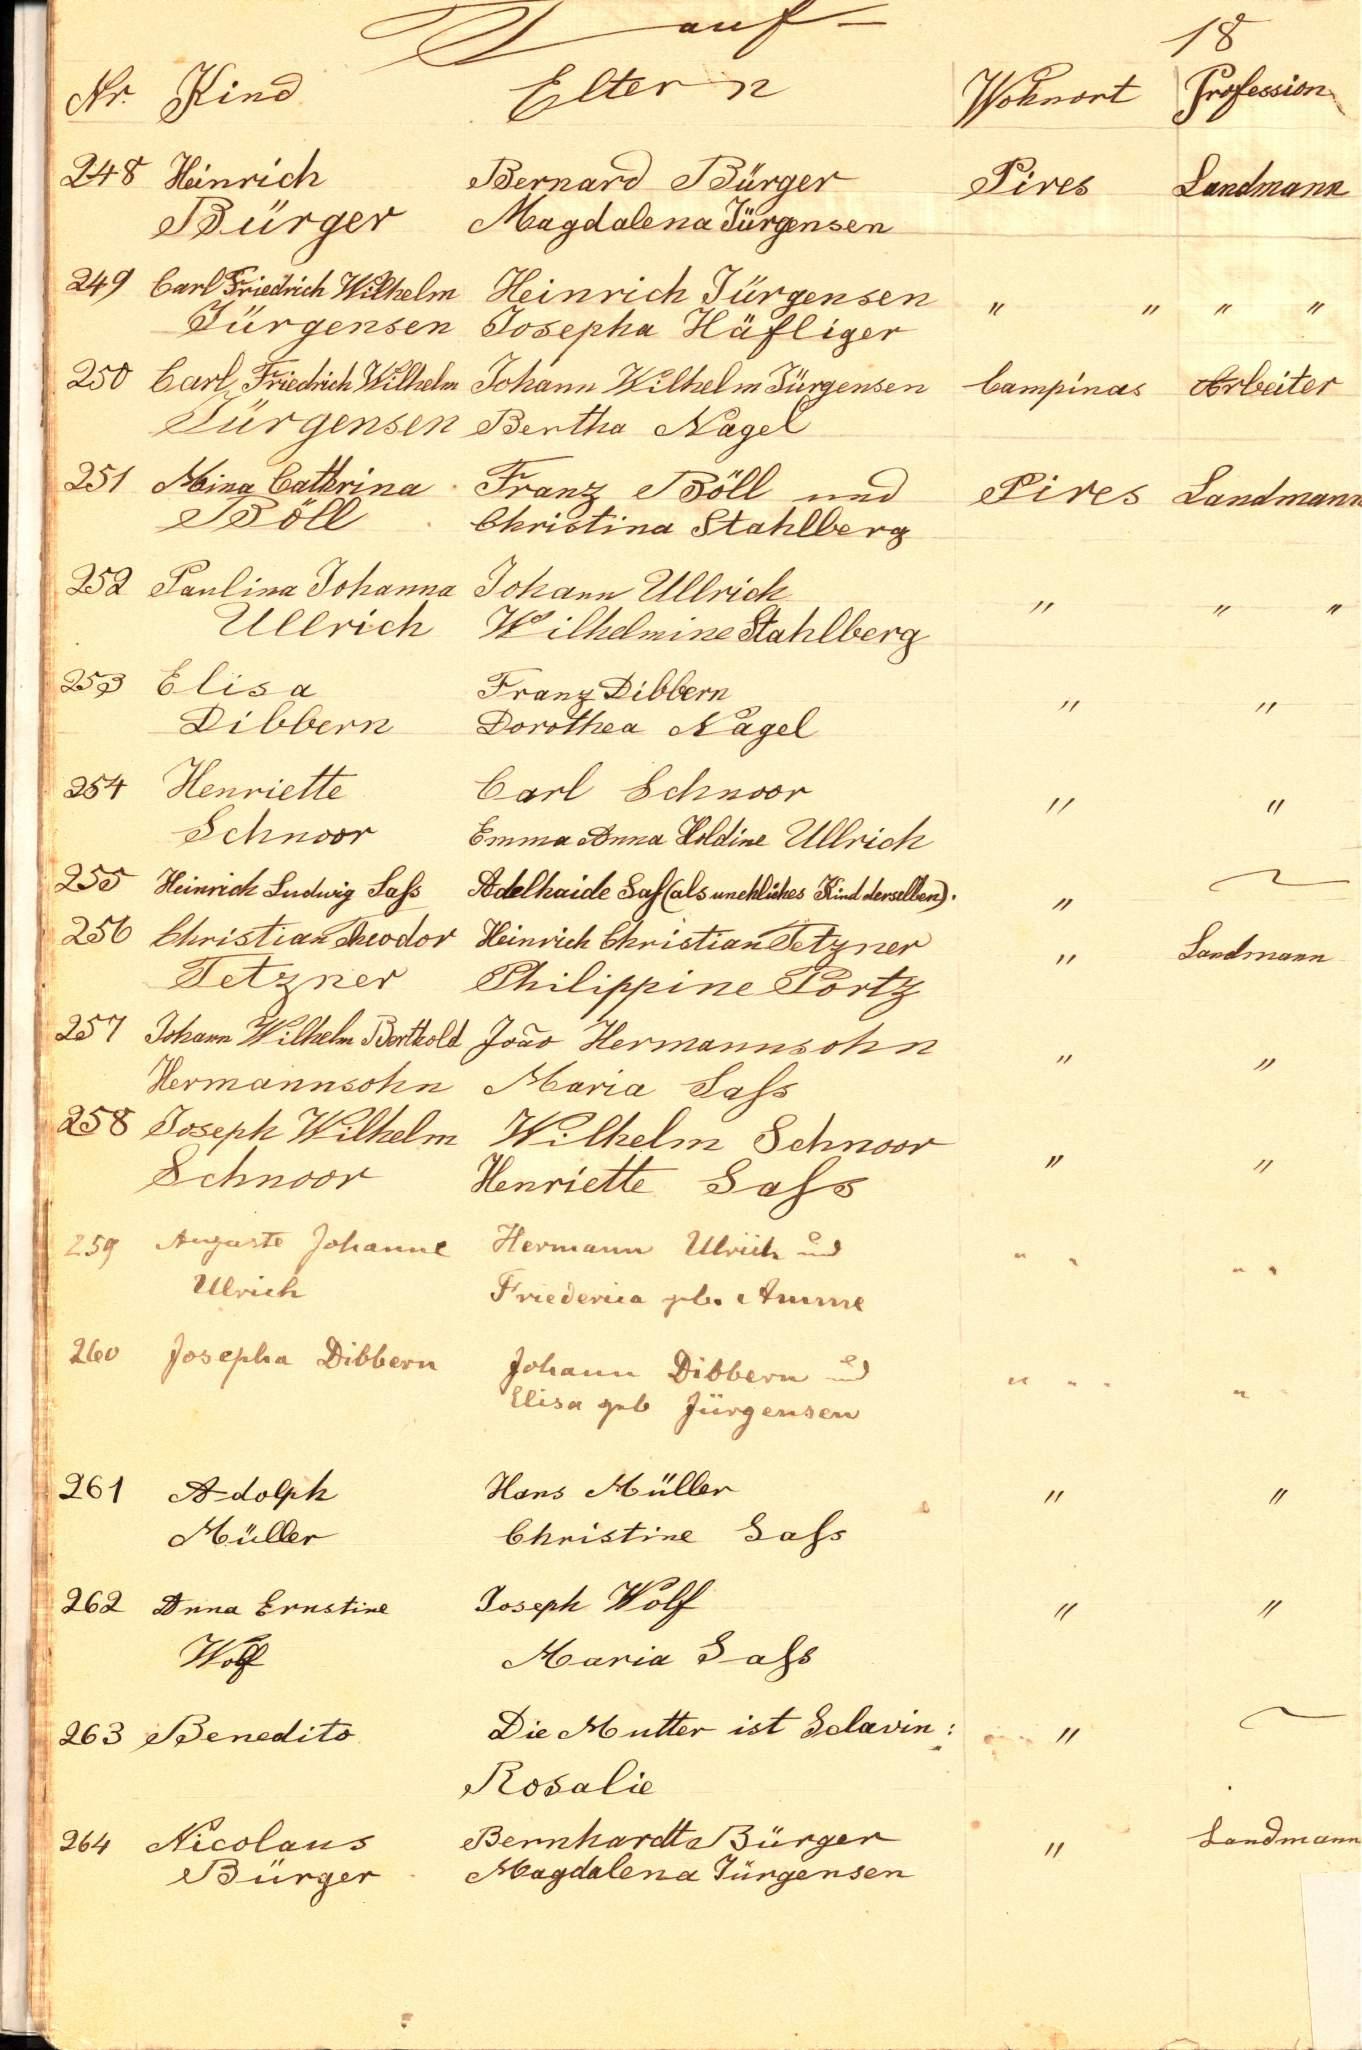 Tauf-
18
Nr. Kind Eltern Wohnort Profession
248 Heinrich Bernard Bürger Pires Landmann
Bürger Magdalena Jürgensen
249 Carl Friedrich Wilhelm Heinrich Jürgensen " " " "
Jürgensen Josepha Häfliger
250 Carl Friedrich Wilhelm Johann Wilhelm Jürgensen Campinas Arbeiter
Jürgensen Bertha Nagel
251 Mina Cathrina Franz Böll und Pires Landmann
Böll Christina Stahlberg
252 Paulina Johanna Johann Ullrich " " "
Ullrich Wilhelmine Stahlberg
253 Elisa Franz Dibbern " "
Dibbern Dorothea Nagel
254 Henriette Carl Schnoor " "
Schnoor Emma Anna Holdine Ullrich
255 Heinrich Ludwig Saſs Adelhaide Saſs (als unehliches Kind derselben). " ~
256 Christian Theodor Heinrich Christian Tetzner " Landmann
Tetzner Philippine Portz
257 Johann Wilhelm Berthold João Hermannsohn " "
Hermannsohn Maria Saſs
258 Joseph Wilhelm Wilhelm Schnoor " "
Schnoor Henriette Saſs
259 Auguste Johanne Hermann Ulrich und " " " "
Ulrich Friederica geb. Amme
260 Josepha Dibbern Johann Dibbern und " " " "
Elisa geb Jürgensen
261 Adolph Hans Müller " "
Müller Christine Saſs
262 Anna Ernstine Joseph Wolf " "
Wolf Maria Saſs
263 Benedito Die Mutter ist Sclavin: " ~
Rosalie
264 Nicolaus Bernhardt Bürger " Landmann
Bürger Magdalena Jürgensen